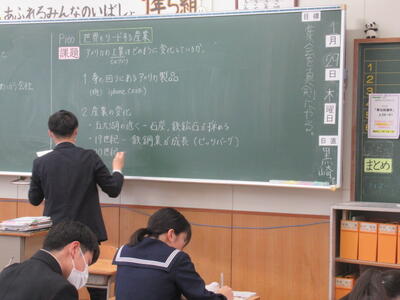 あふれるみんなのいばしょ 1年5組
P100 世界をリードする産業
課題 アメリカの工業はどのように変化しているか。
1 身の回りにあるアメリカ製品
(例) iphone
2 産業の変化
・五大湖の近く－石炭、鉄鉱石が採れる
・19世紀－鉄鋼業が成長(ピッツバーグ)
目標
集会を真剣にやる。
1月29日木曜日
日直
黒崎
まとめ